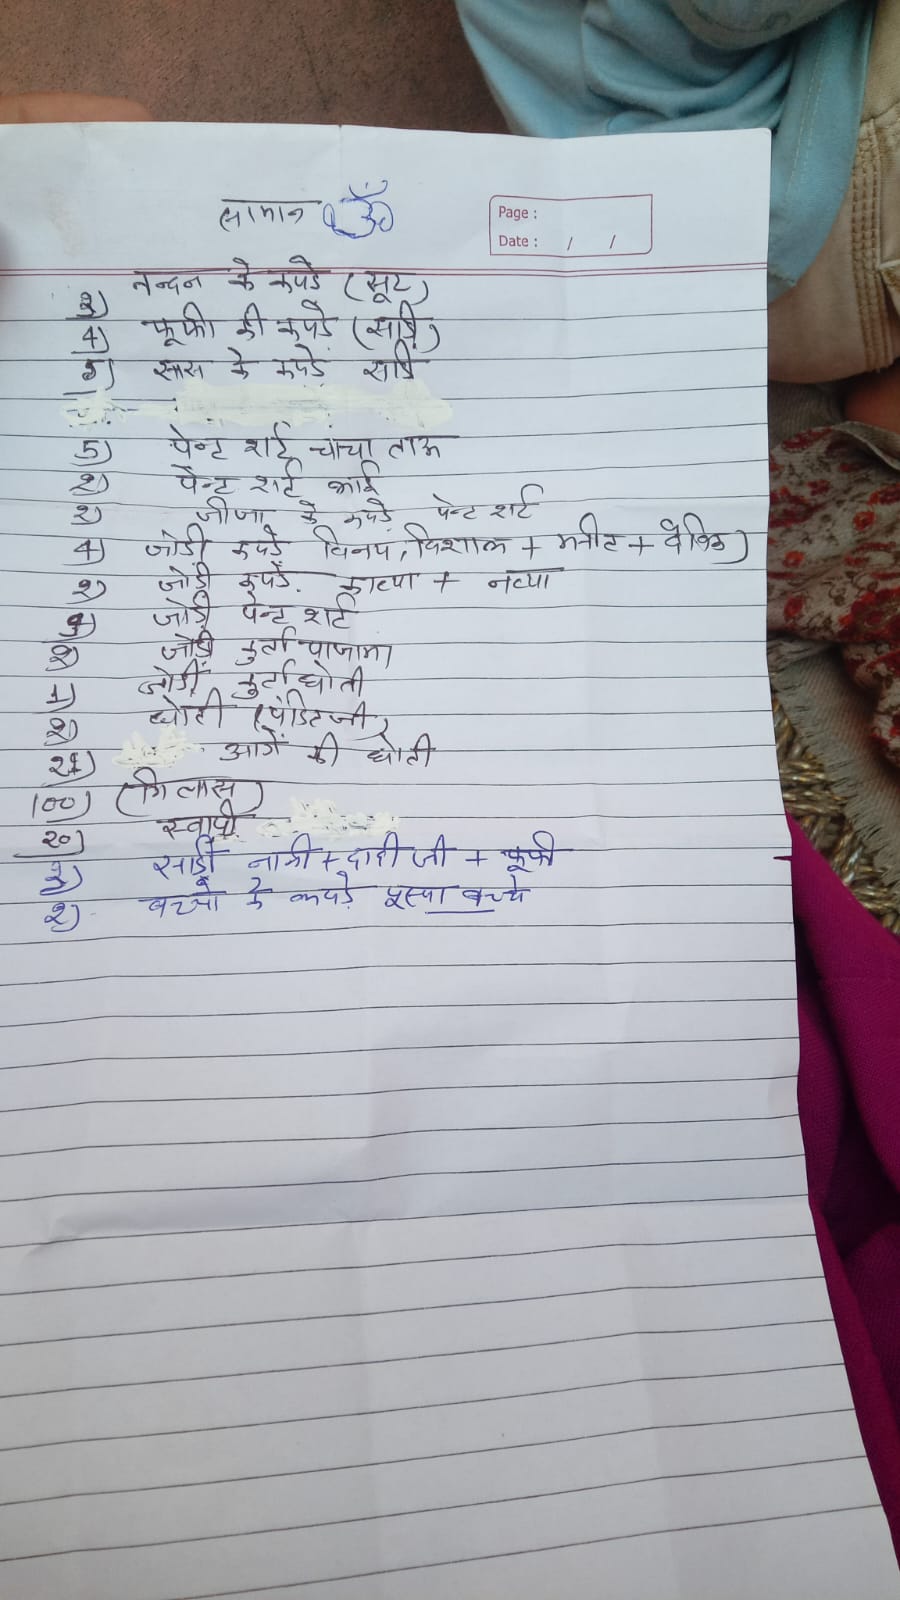 सामान ॐ
Page :
Date : / /
२) नन्दन के कपडे (सूट)
4) फूफी की कपडे (साडि)
३) सास के कपडे साडि
5) पेन्ट शर्ट चाचा ताऊ
२) पेन्ट शर्ट भाई
२) जीजा के कपडे पेन्ट शर्ट
4) जोडी कपडे विनय, विशाल + मनीत + देविक)
२) जोडी कपडे. काव्या + नव्या
जोडी पेन्ट शर्ट
२) जोडी कुर्ता पाजामा
1) जोडी कुर्ता धोती
२) धोती (पंडित जी)
आगें की धोती
100) (गिलास)
20) स्वापी
३) साडी नानी + दादी जी + फूफी
२) बच्चो के कपडे पुस्पा बच्चे